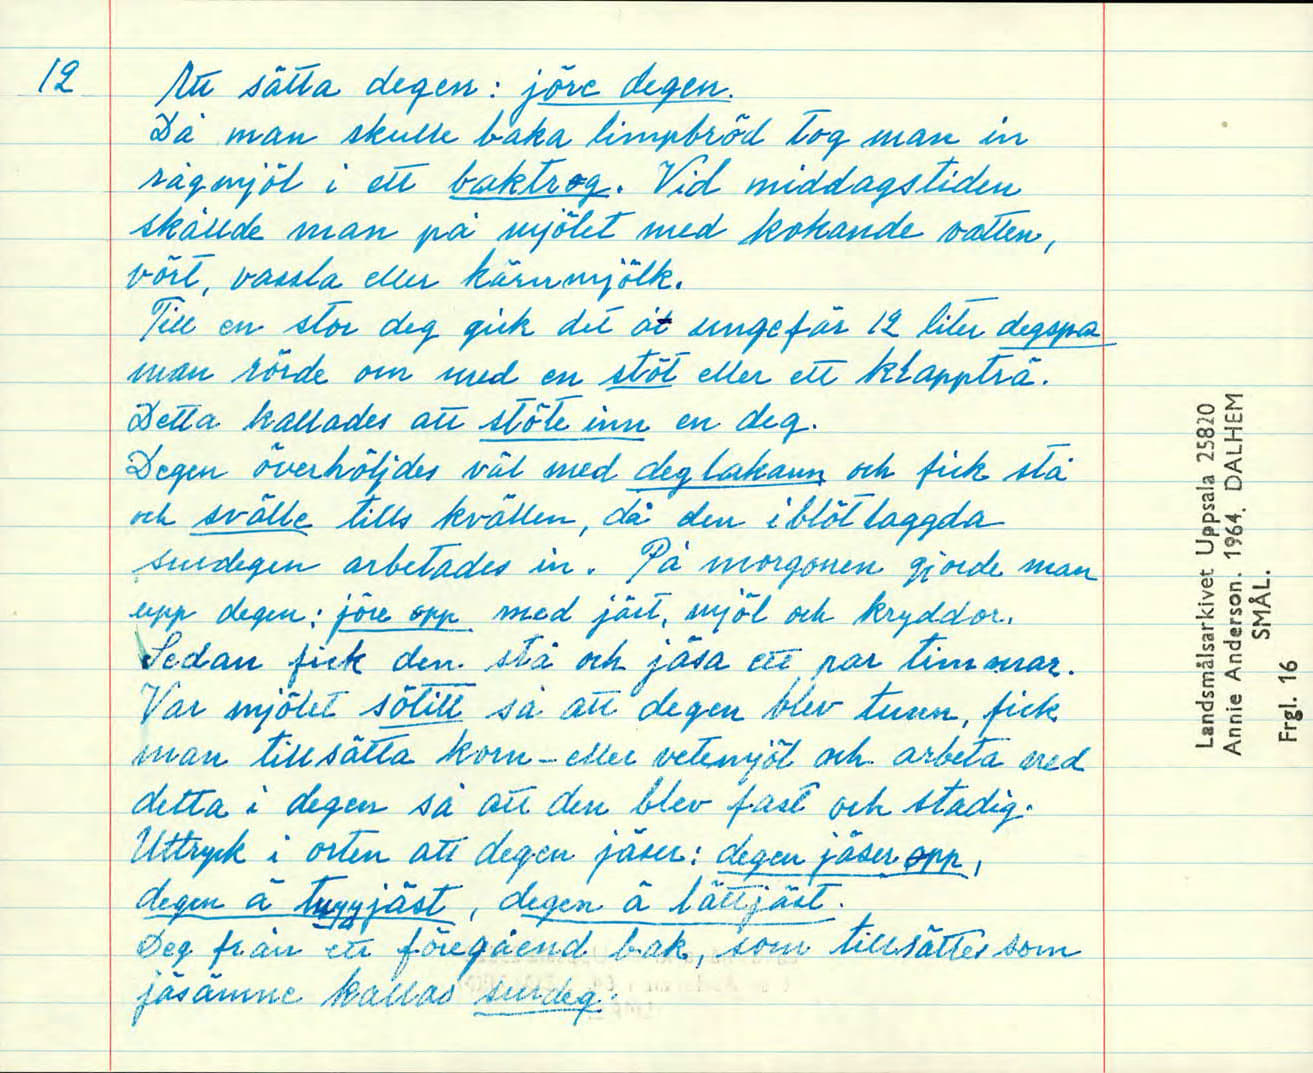 12 Att sätta degen: jöre degen.
Då man skulle baka limpbröd tog man in
rågmjöl i ett baktrog. Vid middagstiden
skållde man på mjölet med kokande vatten,
vört, vassla eller kärnmjölk.
Till en stor deg gick det åt ungefär 12 liter degspa
man rörde om med en stöt eller ett klappträ.
Detta kallades att stöte inn en deg.
Degen överhöljdes väl med deglakann och fick stå
och svälle tills kvällen, då den iblötlaggda
surdegen arbetades in. På morgonen gjorde man
upp degen: jöre opp med jäst, mjöl och kryddor.
Sedan fick den stå och jäsa ett par timmar.
Var mjölet sötitt så att degen blev tunn, fick
man tillsätta korn- eller vetemjöl och arbeta ned
detta i degen så att den blev fast och stadig.
Uttryck i orten att degen jäser: degen jäser opp,
degen ä jäst, degen ä lättjäst.
Deg från ett föregåend bak, som tillsättes som
jäsämne kallas surdeg.
Landsmålsarkivet Uppsala 25820
Annie Anderson. 1964. DALHEM
SMÅL.
Frgl. 16